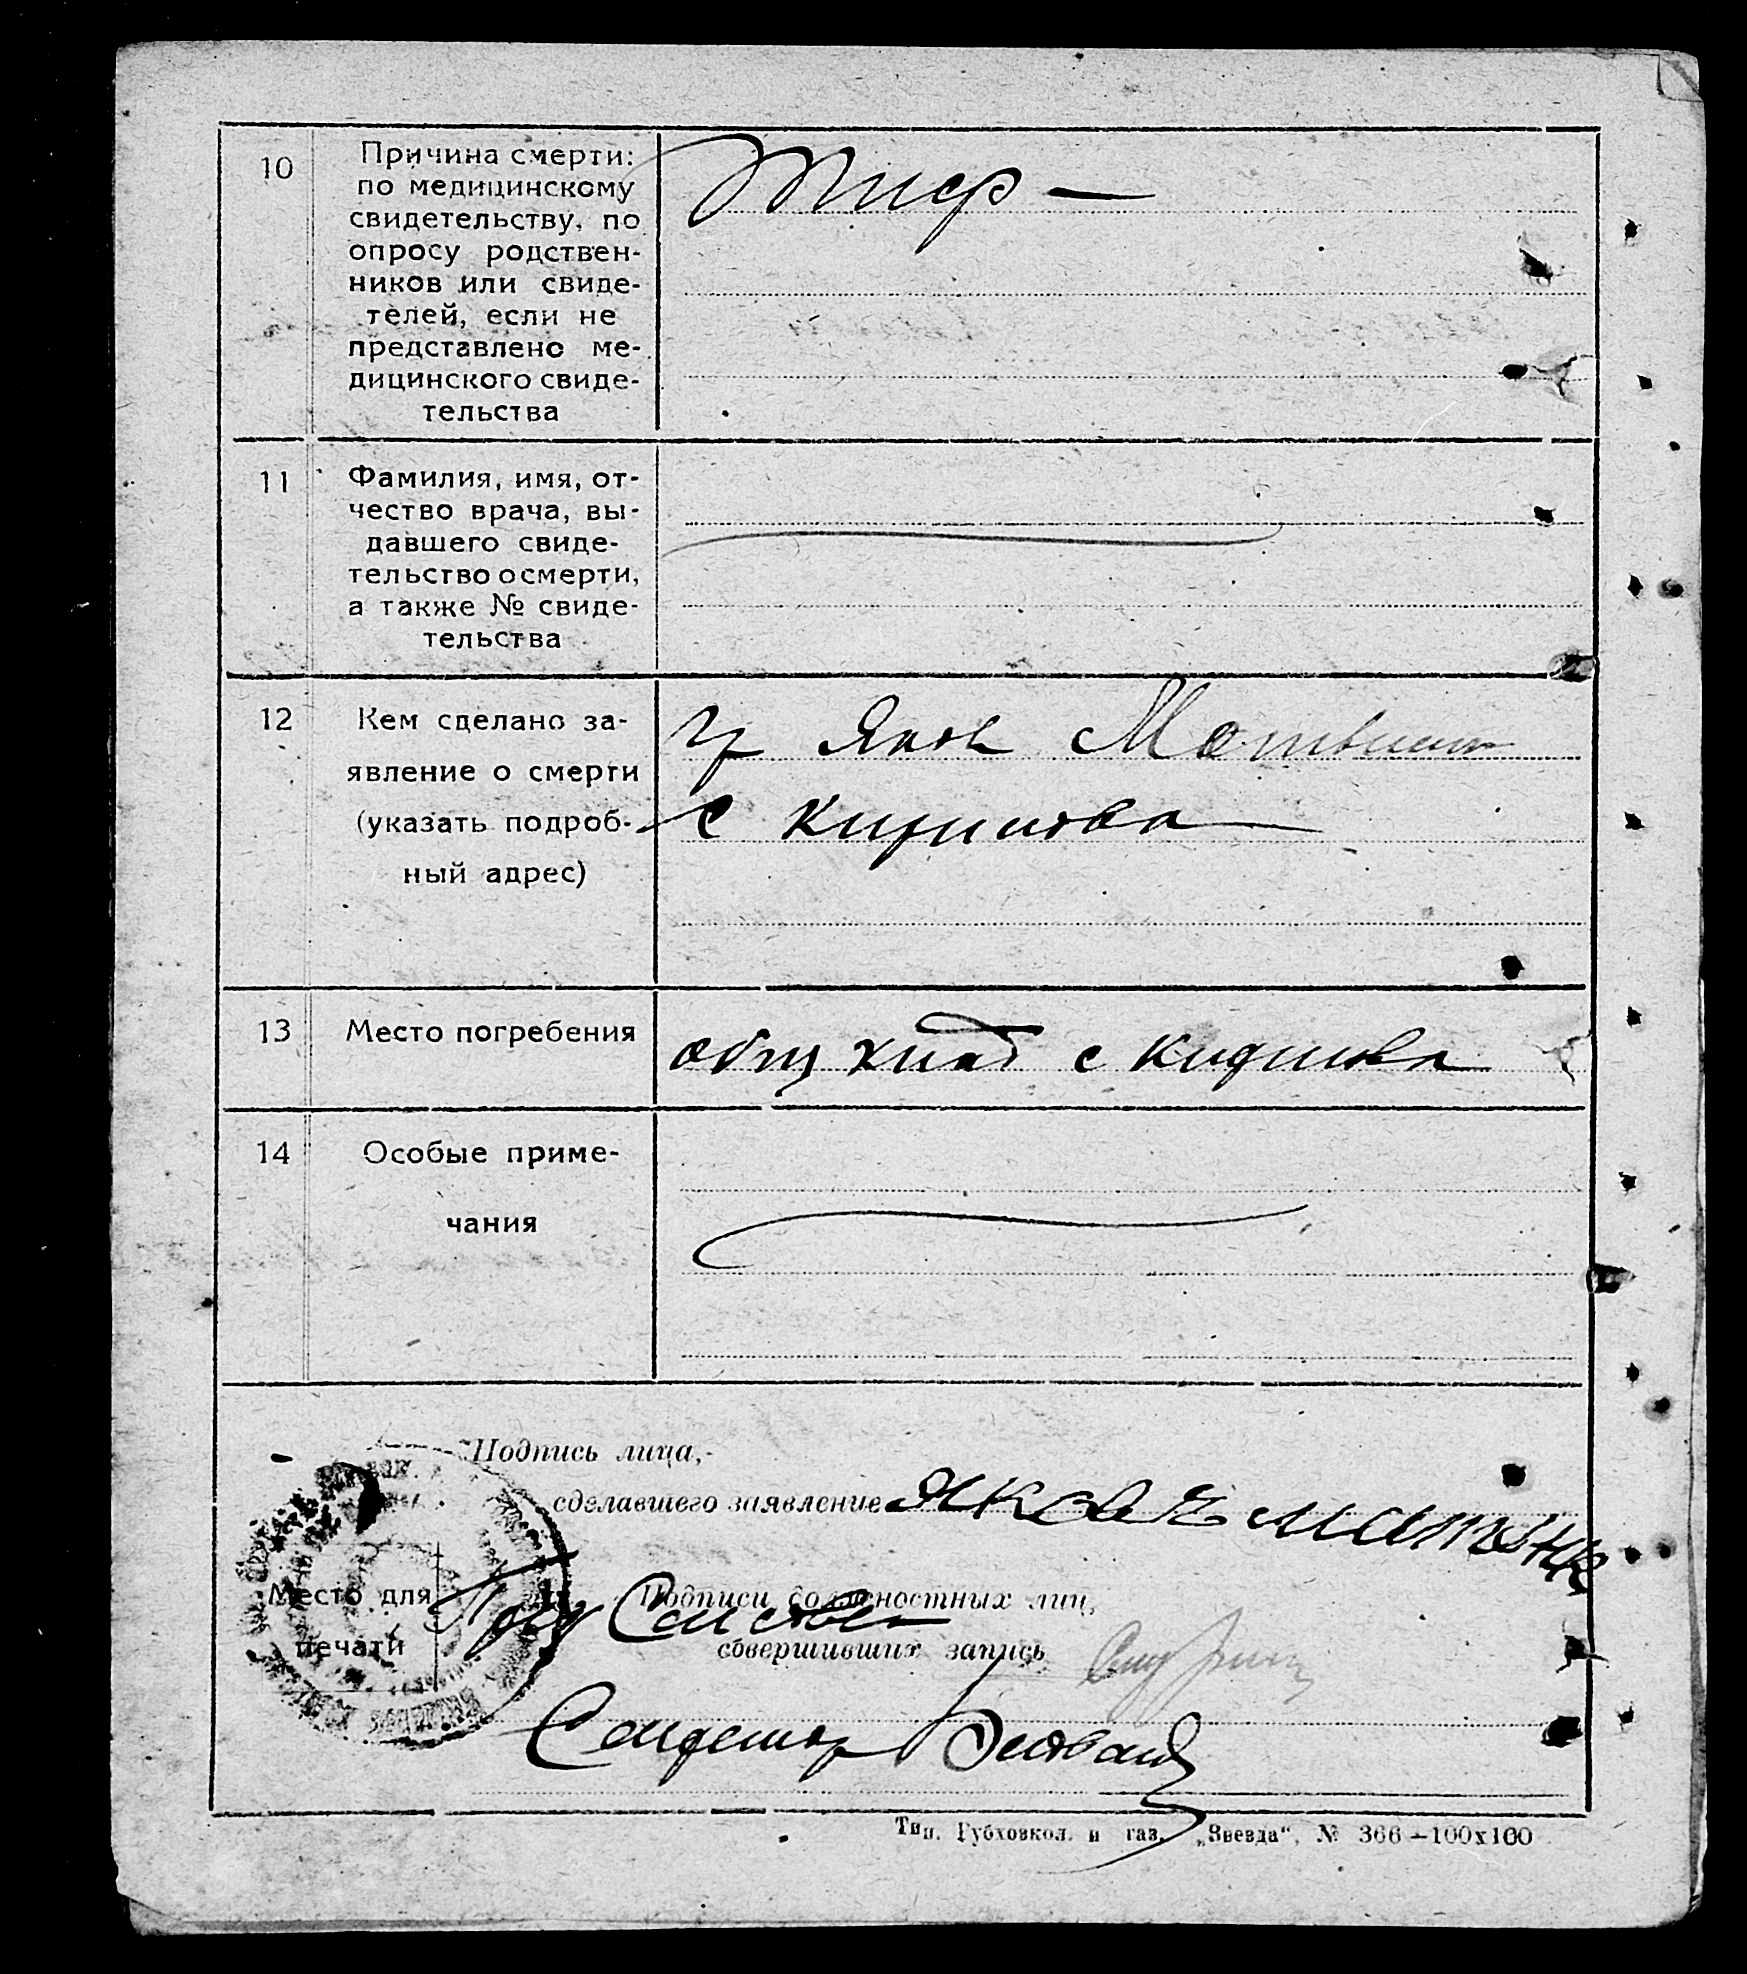 10
Причина смерти:
по медицинскому
свидетельству, по
опросу родствен-
ников или свиде-
телей, если не
представлено ме-
дицинского свиде-
тельства
Тиф —
11
Фамилия, имя, от-
чество врача, вы-
давшего свиде-
тельство о смерти,
а также № свиде-
тельства
12
Кем сделано за-
явление о смерти
(указать подроб-
ный адрес)
гр Яков
с
13
Место погребения
общ клад с
14
Особые приме-
чания
Подпись лица,
сделавшего заявление
Место для
печати
Пред
Подписи должностных лиц,
совершивших запись
Тип. Губховкол. и газ. „Звезда“, № 366—100х100